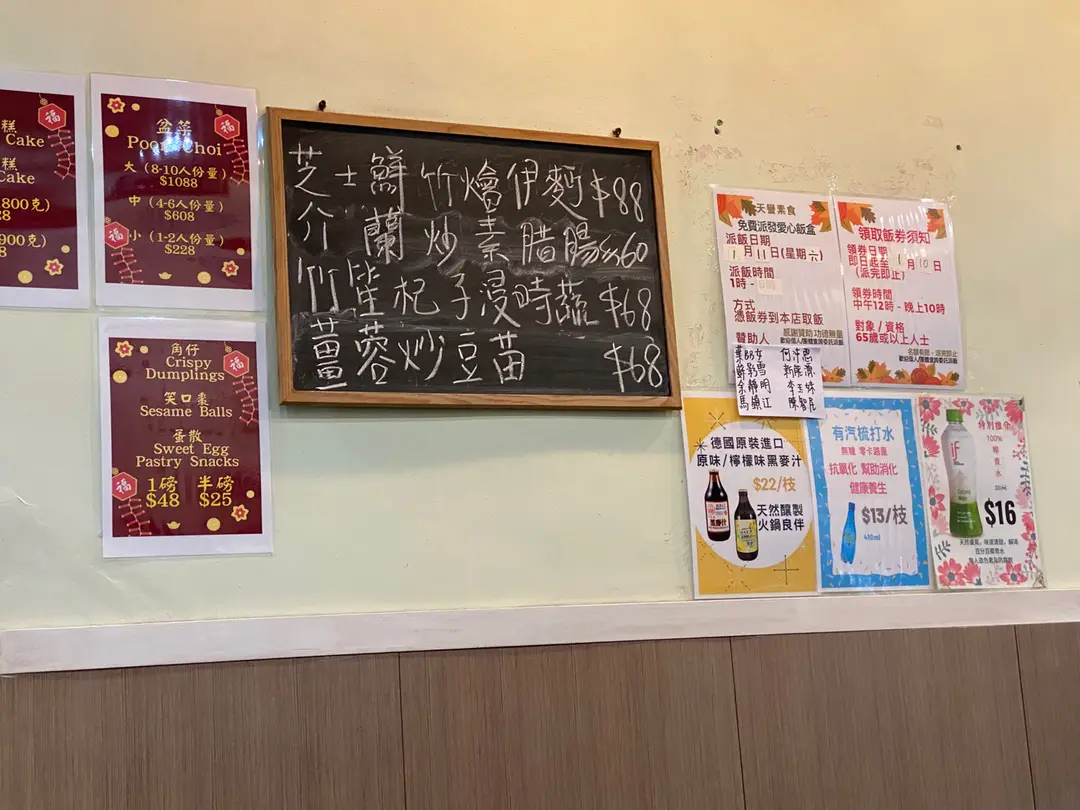 糕
Cake
糕
Cake
800克)
28
900克)
8
福
盆菜
Poon Choi
大（8-10人份量）
$1088
中（4-6人份量）
$608
小（1-2人份量）
$228
福
福
角仔
Crispy
Dumplings
笑口棗
Sesame Balls
蛋散
Sweet Egg
Pastry Snacks
1磅 半磅
$48 $25
福
福
芝士鮮竹燴伊麵$88
介蘭炒素腊腸$60
竹笙杞子浸時蔬$68
薑蓉炒豆苗 $68
天譽素食
免費派發愛心飯盒
派飯日期
1月11日(星期六)
派飯時間
1時-
方式
憑飯券到本店取飯
感謝贊助 功德無量
贊助人
領取飯券須知
領券日期
即日起至1月10日
(派完即止)
領券時間
中午12時 - 晚上10時
對象 / 資格
65歲或以上人士
德國原裝進口
原味/檸檬味黑麥汁
$22/枝
天然釀製
火鍋良伴
有汽梳打水
無糖 零卡路里
抗氧化 幫助消化
健康養生
$13/枝
410ml
特別推介
100%
椰
青
水
if
$16